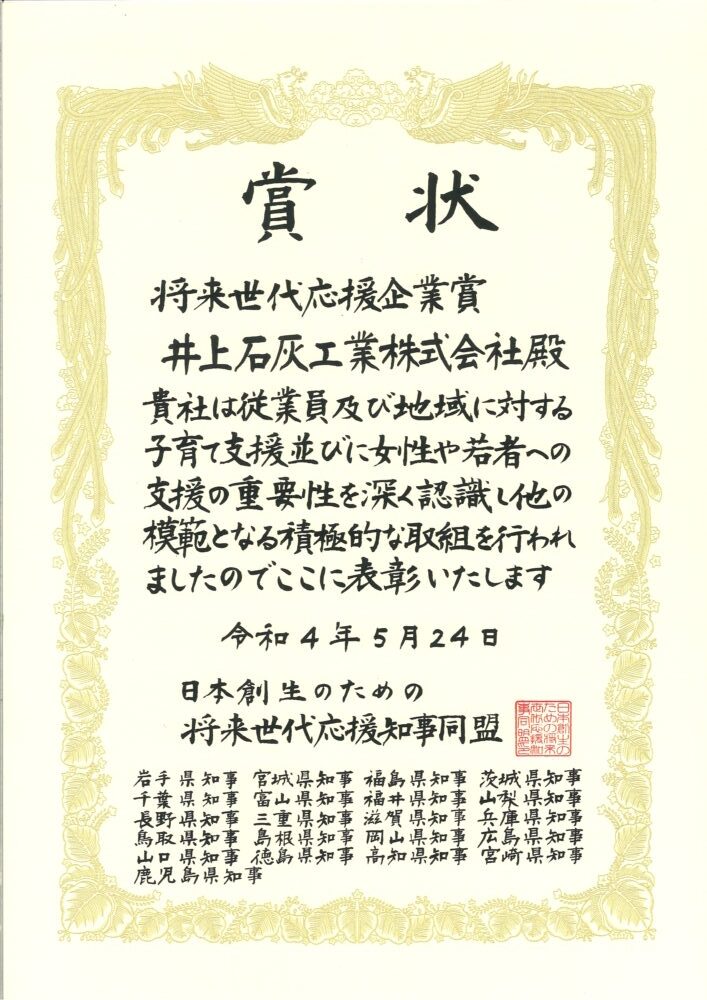 賞状
将来世代応援企業賞
井上石灰工業株式会社殿
貴社は従業員及び地域に対する
子育て支援並びに女性や若者への
支援の重要性を深く認識し他の
模範となる積極的な取組を行われ
ましたのでここに表彰いたします
令和4年5月24日
日本創生のための
将来世代応援知事同盟
岩手県知事 宮城県知事 福島県知事 茨城県知事
千葉県知事 富山県知事 福井県知事 山梨県知事
長野県知事 三重県知事 滋賀県知事 兵庫県知事
鳥取県知事 島根県知事 岡山県知事 広島県知事
山口県知事 徳島県知事 高知県知事 宮崎県知事
鹿児島県知事